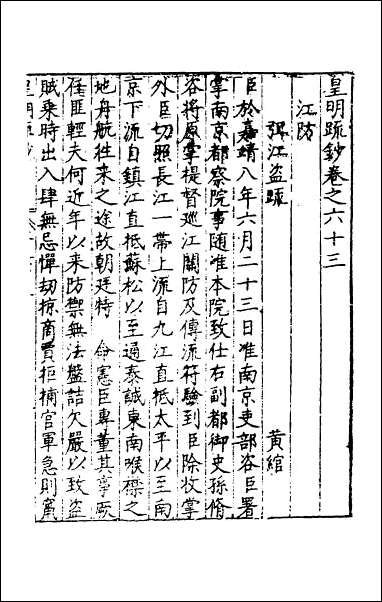 皇明疏鈔卷之六十三
江防
弭江盜疏
黃綰
臣於嘉靖八年六月二十三日准南京吏部咨臣署
掌南京都察院事隨准本院致仕右副都御史孫脩
咨將原掌提督巡江關防及傳流符驗到臣除收掌
外臣切照長江一帶上流自九江直抵太平以至南
京下流自鎮江直抵蘇松以至通泰誠東南喉襟之
地舟航往來之途故朝廷特 命憲臣專董其事厥
任匪輕夫何近年以來防禦無法盤詰欠嚴以致盜
賊乘時出入肆無忌憚劫掠商賈拒捕官軍急則竄